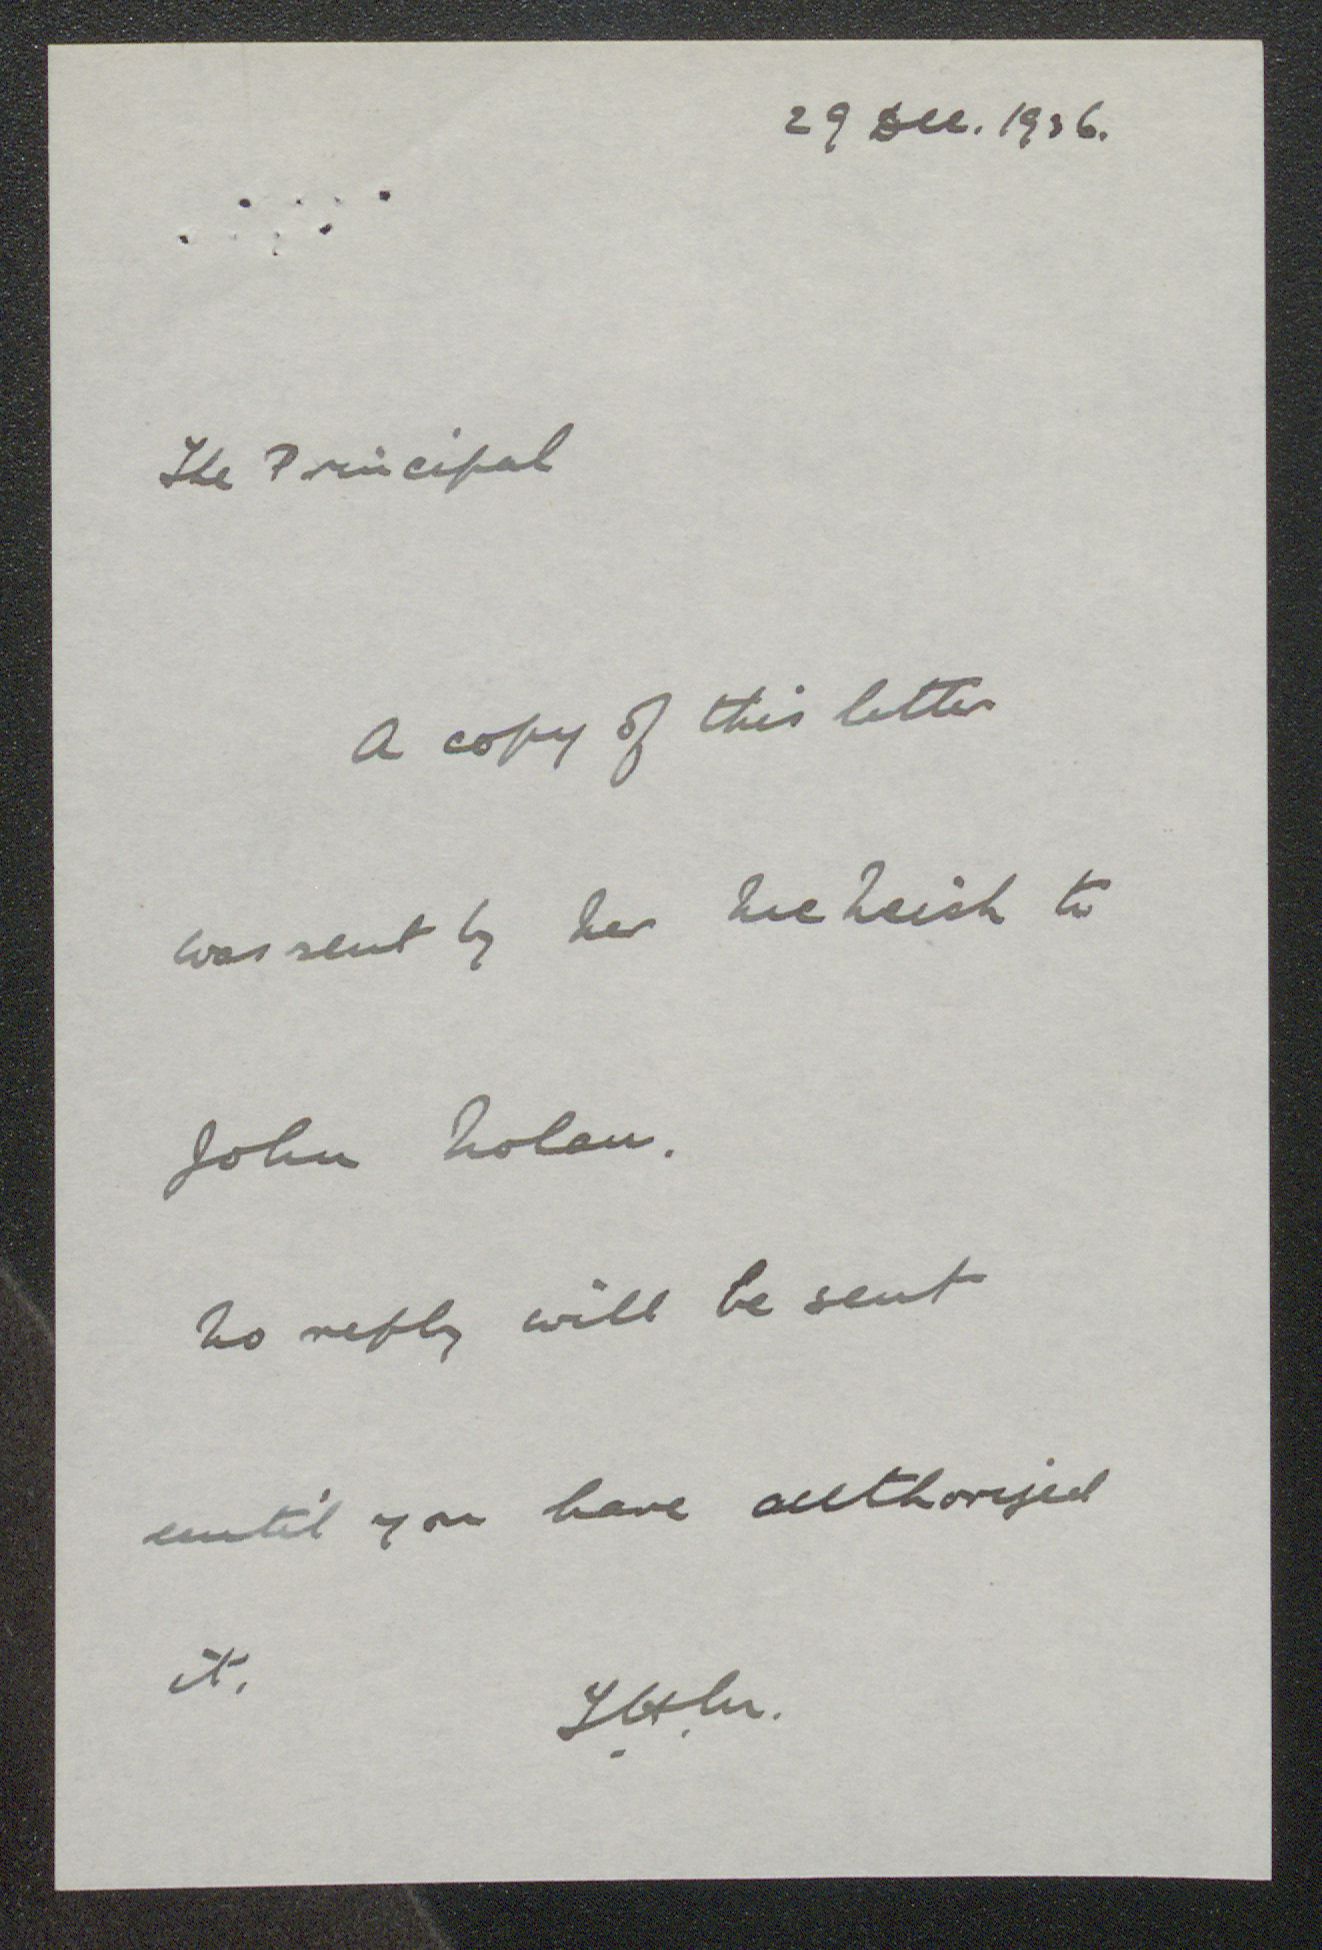 29 Dec. 1936.
The Principal
A copy of this letter
was sent by her to
John Nolan.
No reply will be sent
until you have authorized
it.